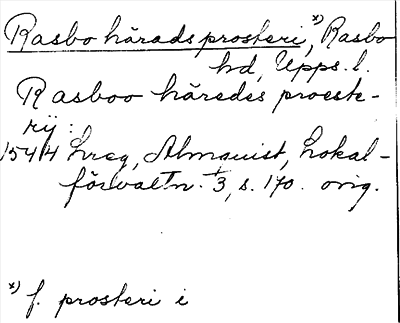 Rasbo häradsprosteri,*) Rasbo
hd, Upps. l.
Rasboo häredes proeste-
rij:
1544 hreg, Almquist, Lokal-
förvaltn. 3, s. 170. orig.
*) f. prosteri i